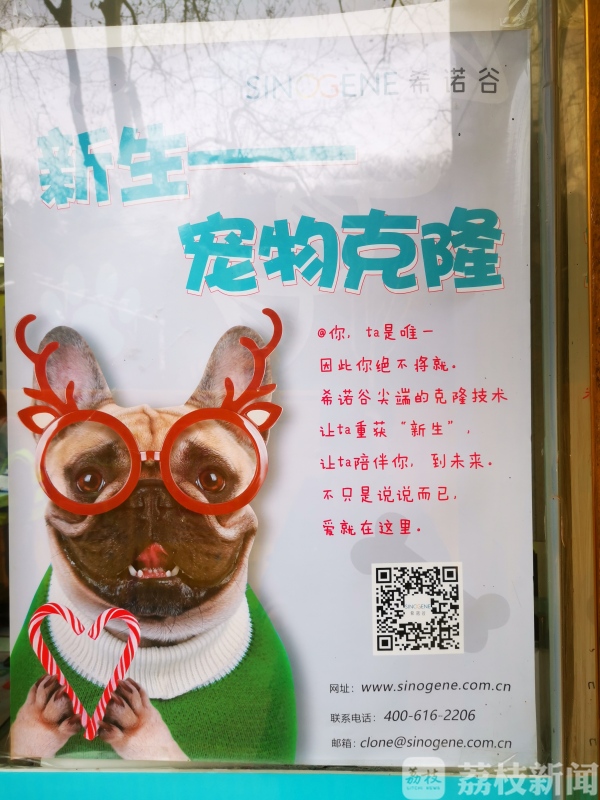 SINOGENE 希诺谷
新生——
宠物克隆
@你，ta是唯一
因此你绝不将就。
希诺谷尖端的克隆技术
让ta重获“新生”，
让ta陪伴你，到未来。
不只是说说而已，
爱就在这里。
SINOGENE
希诺谷
网址：www.sinogene.com.cn
联系电话：400-616-2206
邮箱：clone@sinogene.com.cn
荔枝
LITCHI NEWS
荔枝新闻